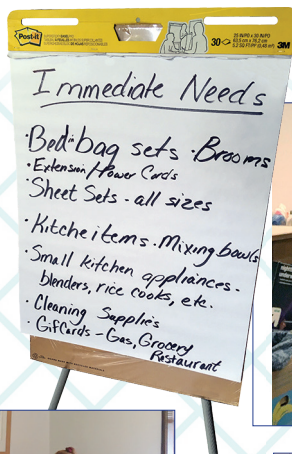 Post-it
30
25 IN/PO x 30 IN/PO
63,5 cm x 76,2 cm
5.2 SQ FT/PI (0,48 m²)
3M
Immediate Needs
· Bed·bag sets · Brooms
· Extension/Power Cords
· Sheet Sets - all sizes
· Kitche items · Mixing bowls
· Small kitchen appliances -
blenders, rice cooks, etc.
· Cleaning Supplies
· GifCards - Gas, Grocery
Restaurant